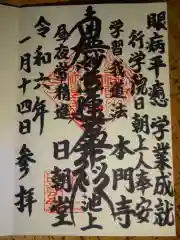 眼病平癒 学業成就
行学院日朝上人奉安
学習我道法
本門寺
池上
南無妙法蓮華経
昼夜常精進
日朝堂
令和六年
一月十四日参拝